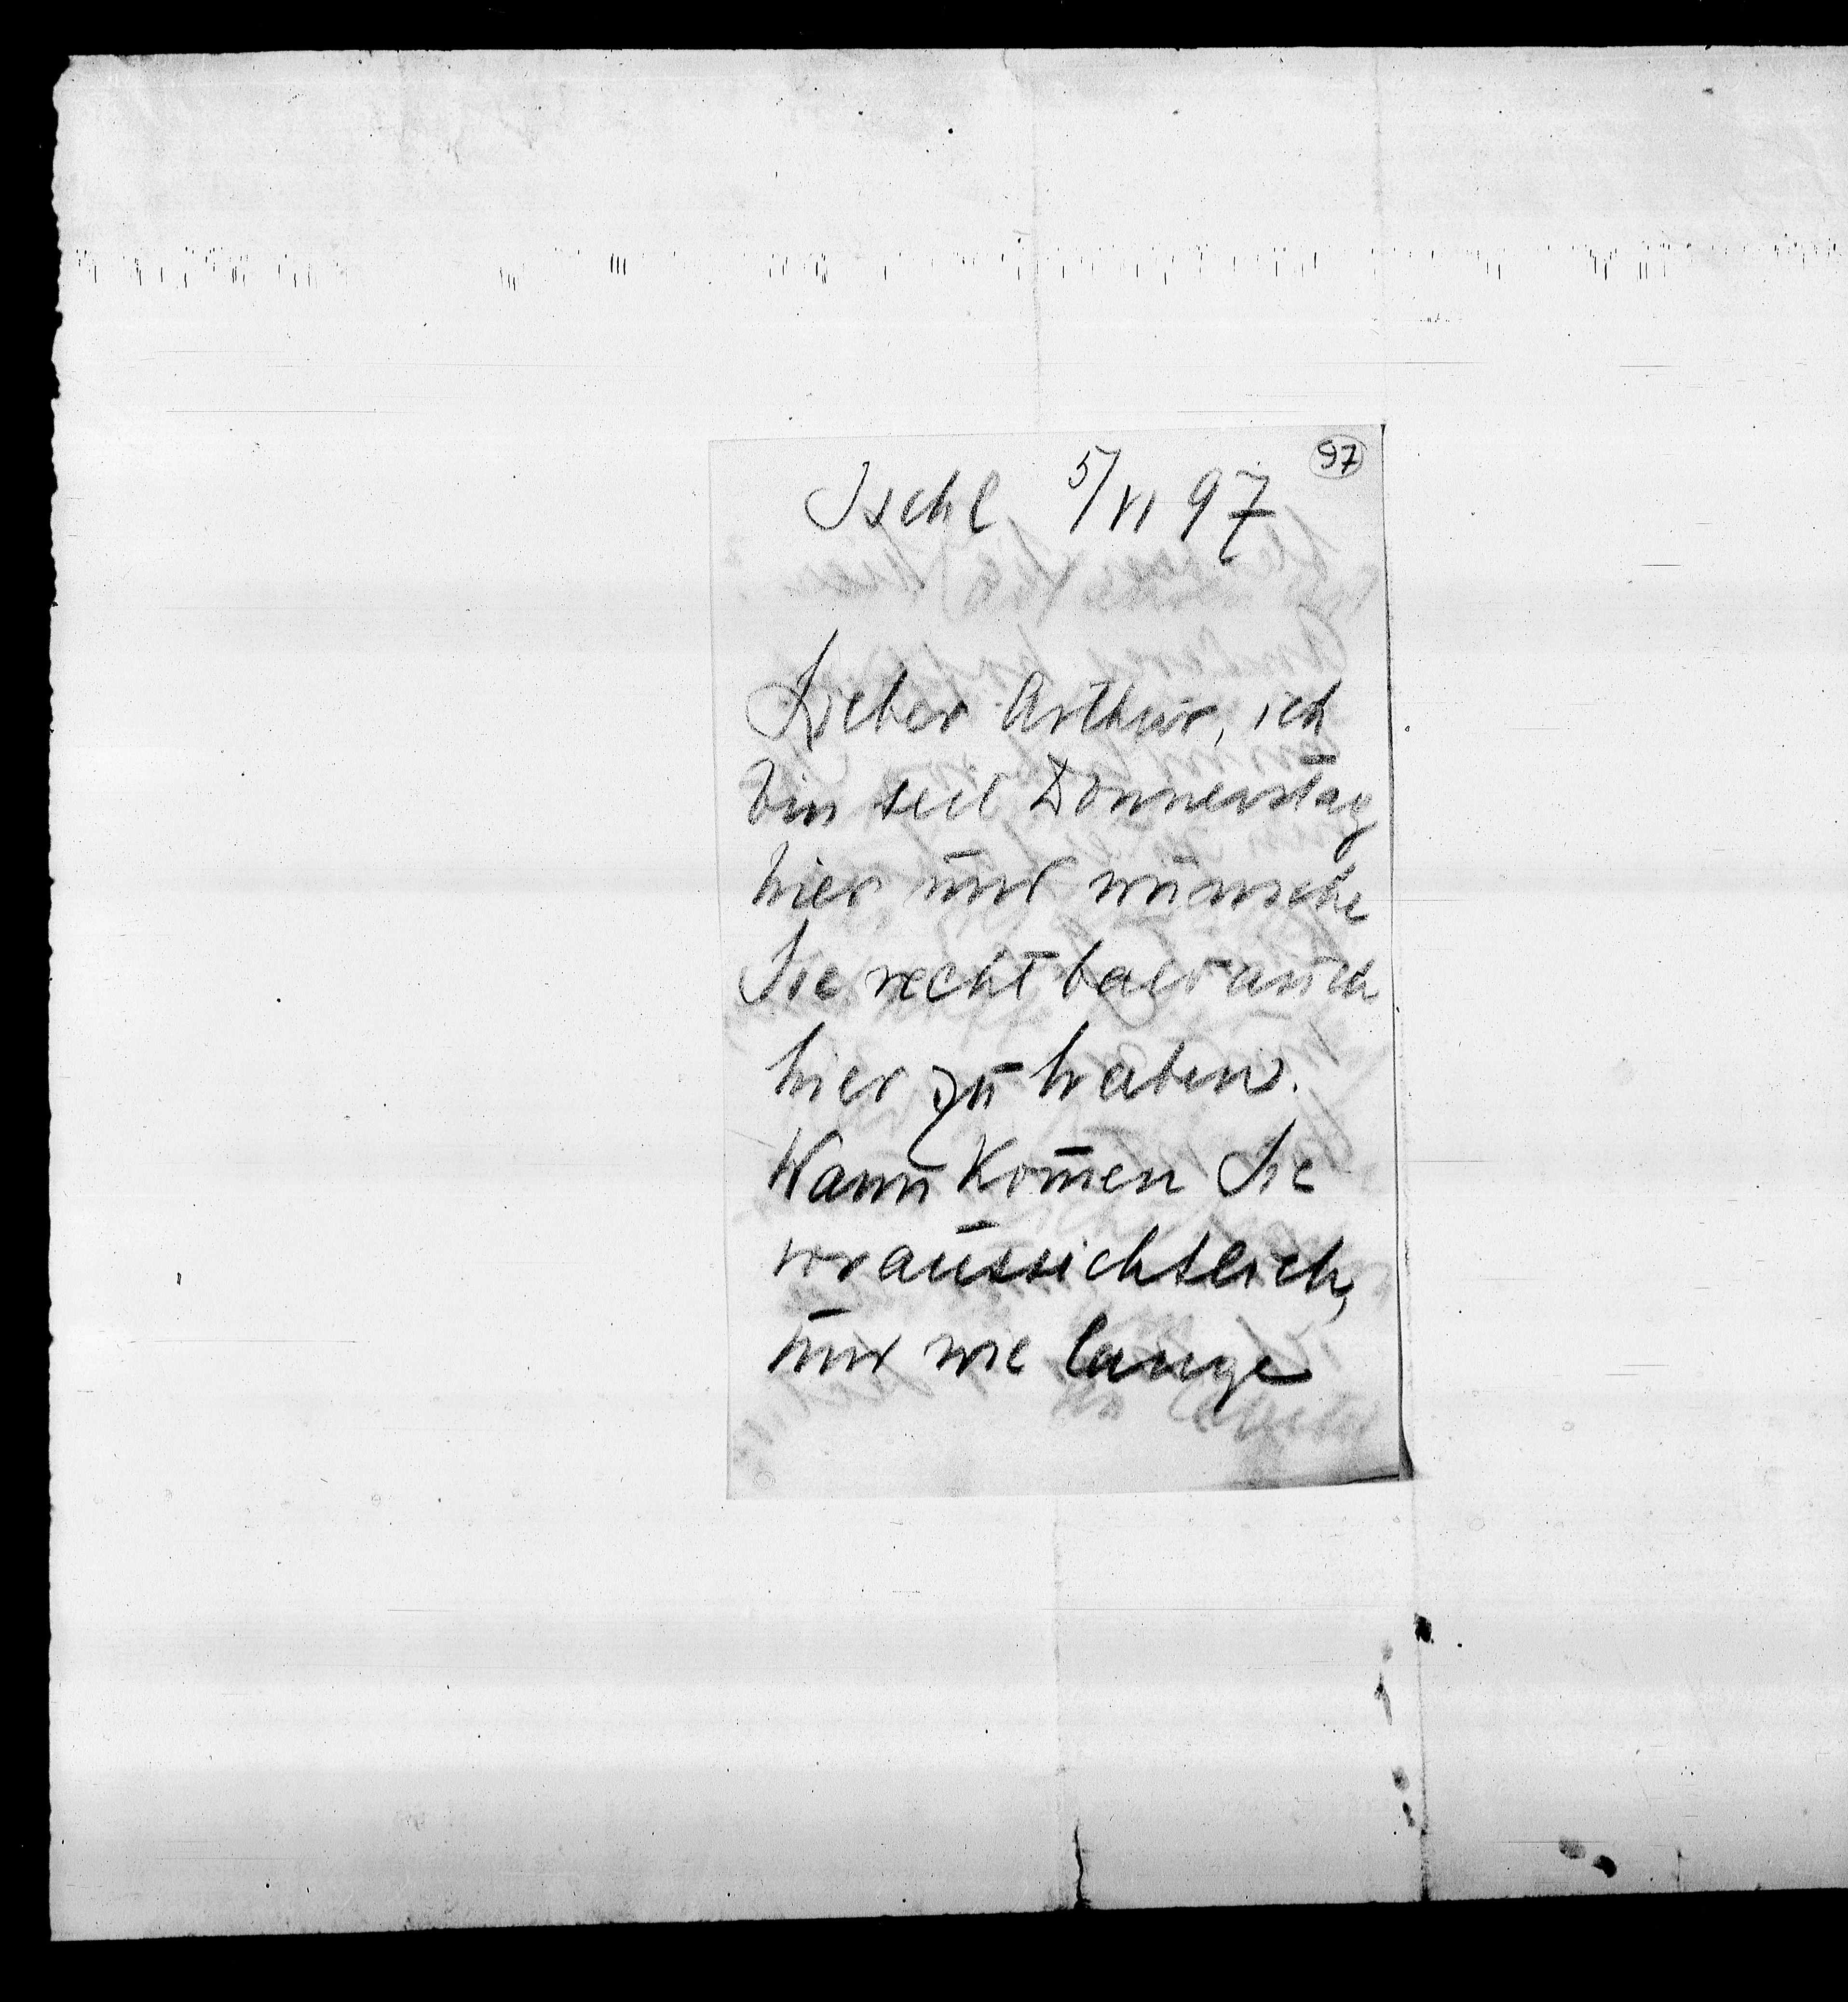 97
Ischl 5/VI 97
Lieber Arthur, ich
bin seit Donnerstag
hier und wünsche
Sie recht bald auch
hier zu haben.
Wann kom̄en Sie
voraussichtlich,
und wie lange